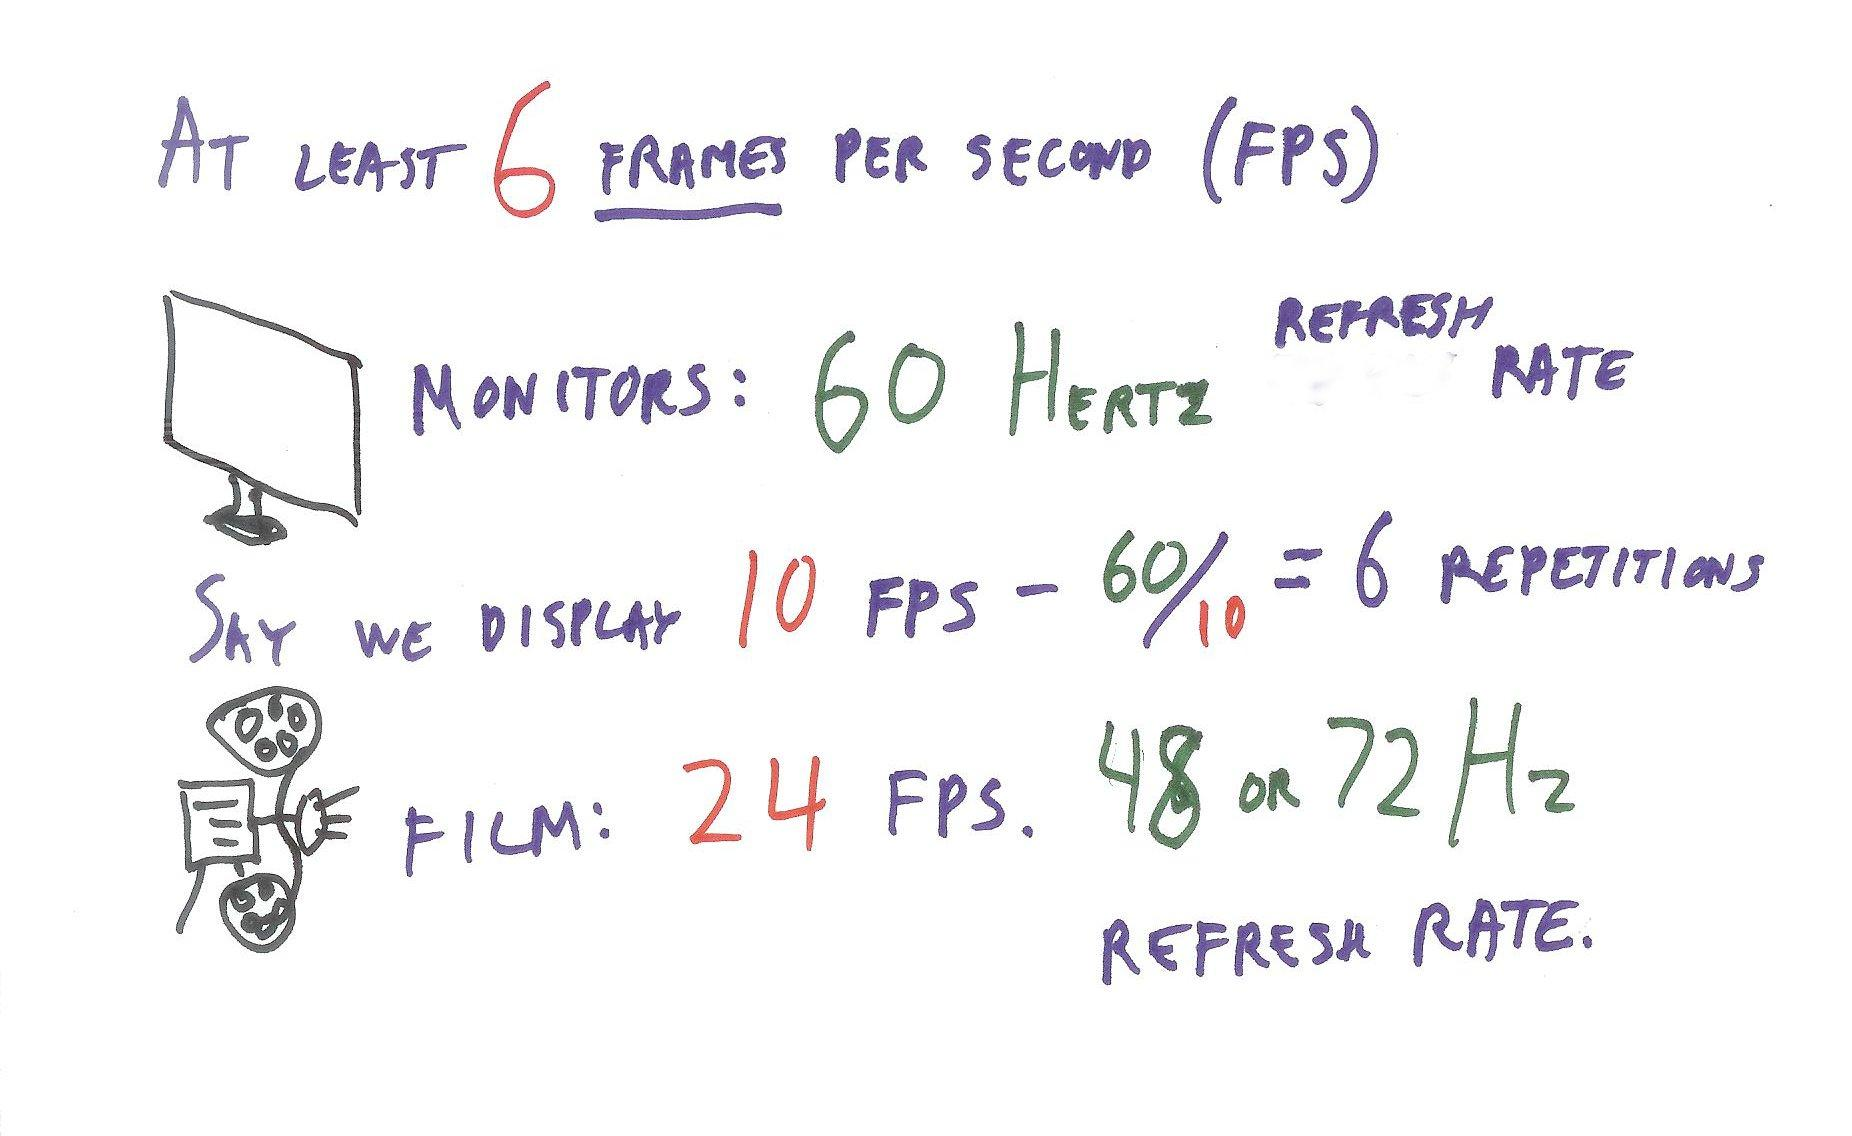 AT LEAST 6 FRAMES PER SECOND (FPS)
MONITORS: 60 HERTZ REFRESH RATE
SAY WE DISPLAY 10 FPS - 60/10 = 6 REPETITIONS
FILM: 24 FPS. 48 OR 72 HZ
REFRESH RATE.